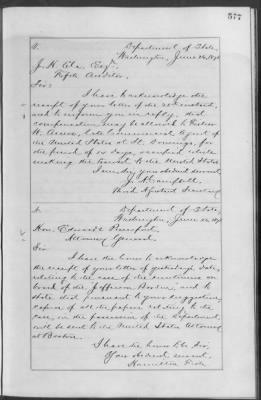 577
Department of State,
Washington, June 24, 187
J. H. Ela, Esqr.
Fifth Auditor.
Sir:
I have to acknowledge the
receipt of your letter of the 22 instant,
and to inform you in reply, that
compensation may be allowed to
H. late Commercial Agent of
the United States at St. Domingo, for
the period of days, occupied while
making the transit to the United States.
I am, Sir, your obedient servant,
J. A. Campbell
Third Assistant Secretary.
Department of State,
Washington, June 187
Hon. Edwards Pierrepont,
Attorney General.
Sir:
I have the honor to acknowledge
the receipt of your letter of yesterday's date,
relating to the case of the
on
board of the Jefferson Borden, and to
state that pursuant to your suggestion,
copies of all the papers relating to the
case, in the possession of the Department,
will be sent to the United States Attorney
at Boston.
I have the honor to be, Sir,
Your obedient servant,
Hamilton Fish